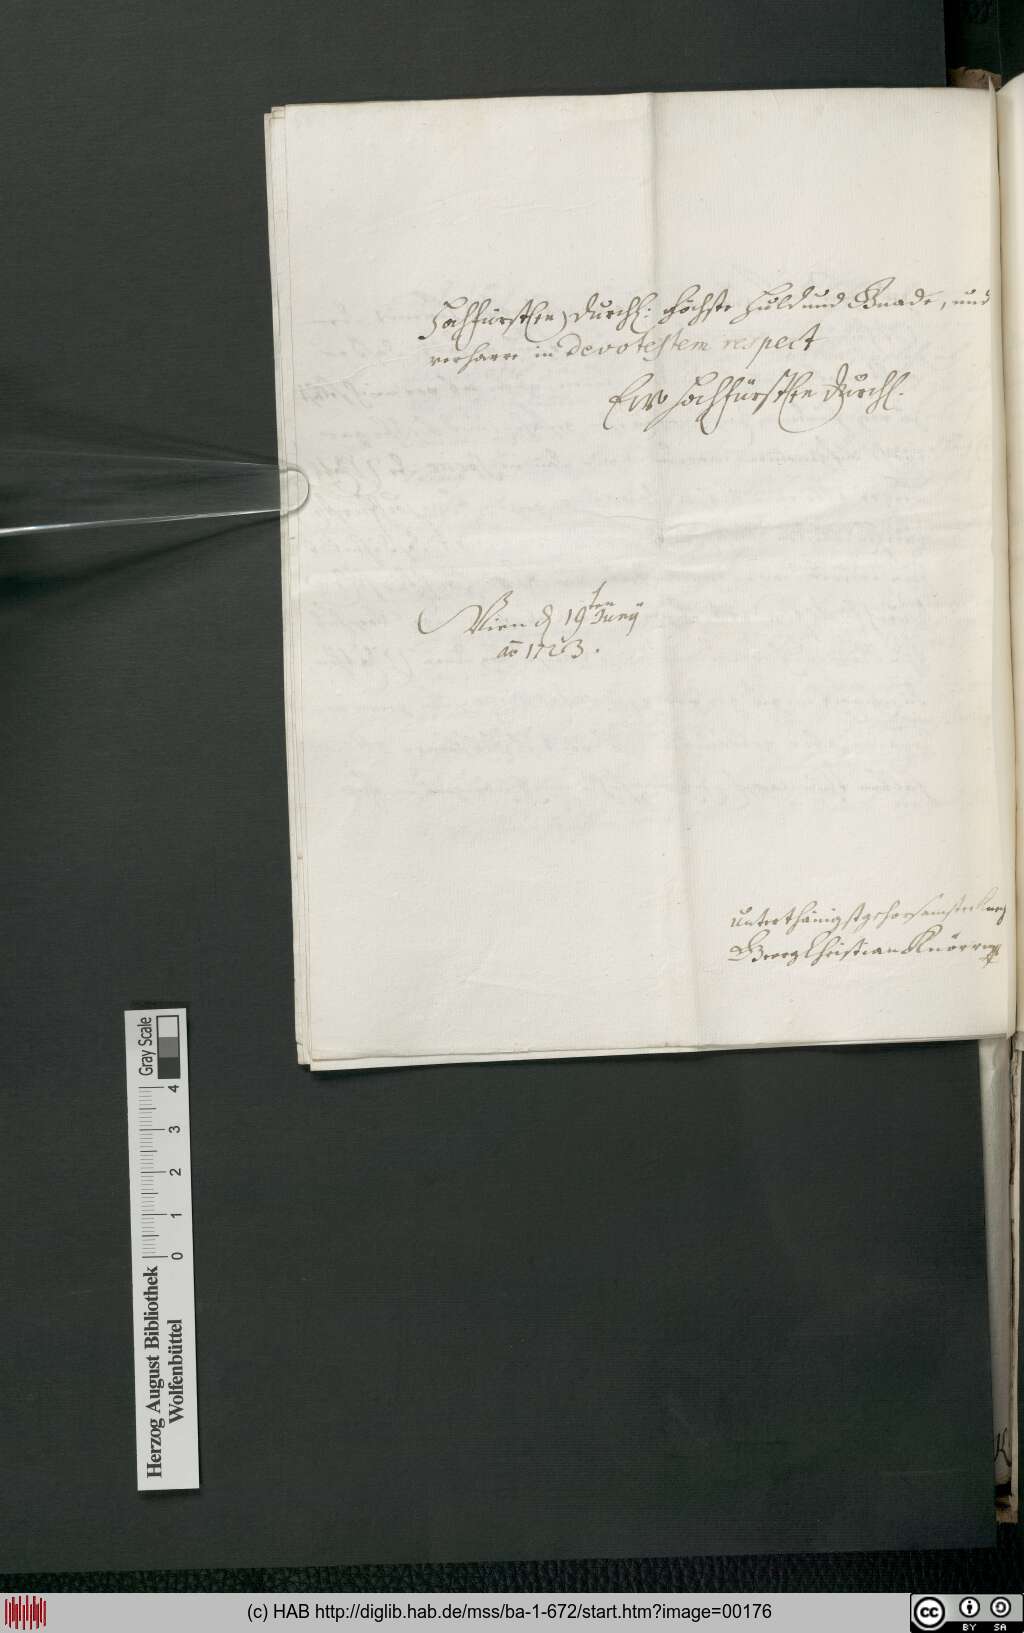 Hochfürstlen Durchl: höchste Huld und Gnade, und
verharre in devotestem respect
Ew Hochfürstlen Durchl.
Wien d 19ten Junij
ao 1723.
unterthänigst gehorsamster
Georg Christian Knörr
Gray Scale
0 1 2 3 4
Herzog August Bibliothek
Wolfenbüttel
(c) HAB http://diglib.hab.de/mss/ba-1-672/start.htm?image=00176
cc BY SA